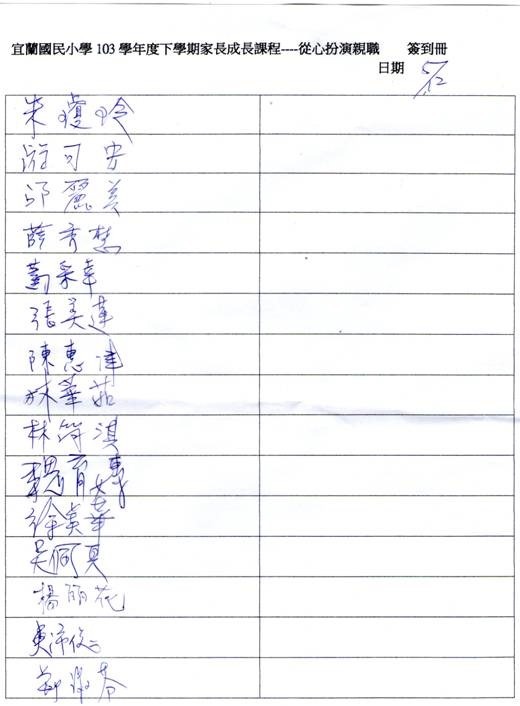 宜蘭國民小學 103 學年度下學期家長成長課程----從心扮演親職 簽到冊
日期 5/12
朱瓊玲
游可安
邱麗美
薛秀慧
萬采幸
張美蓮
陳惠佳
林華茹
林符淇
育
徐美華
吳何
楊麗花